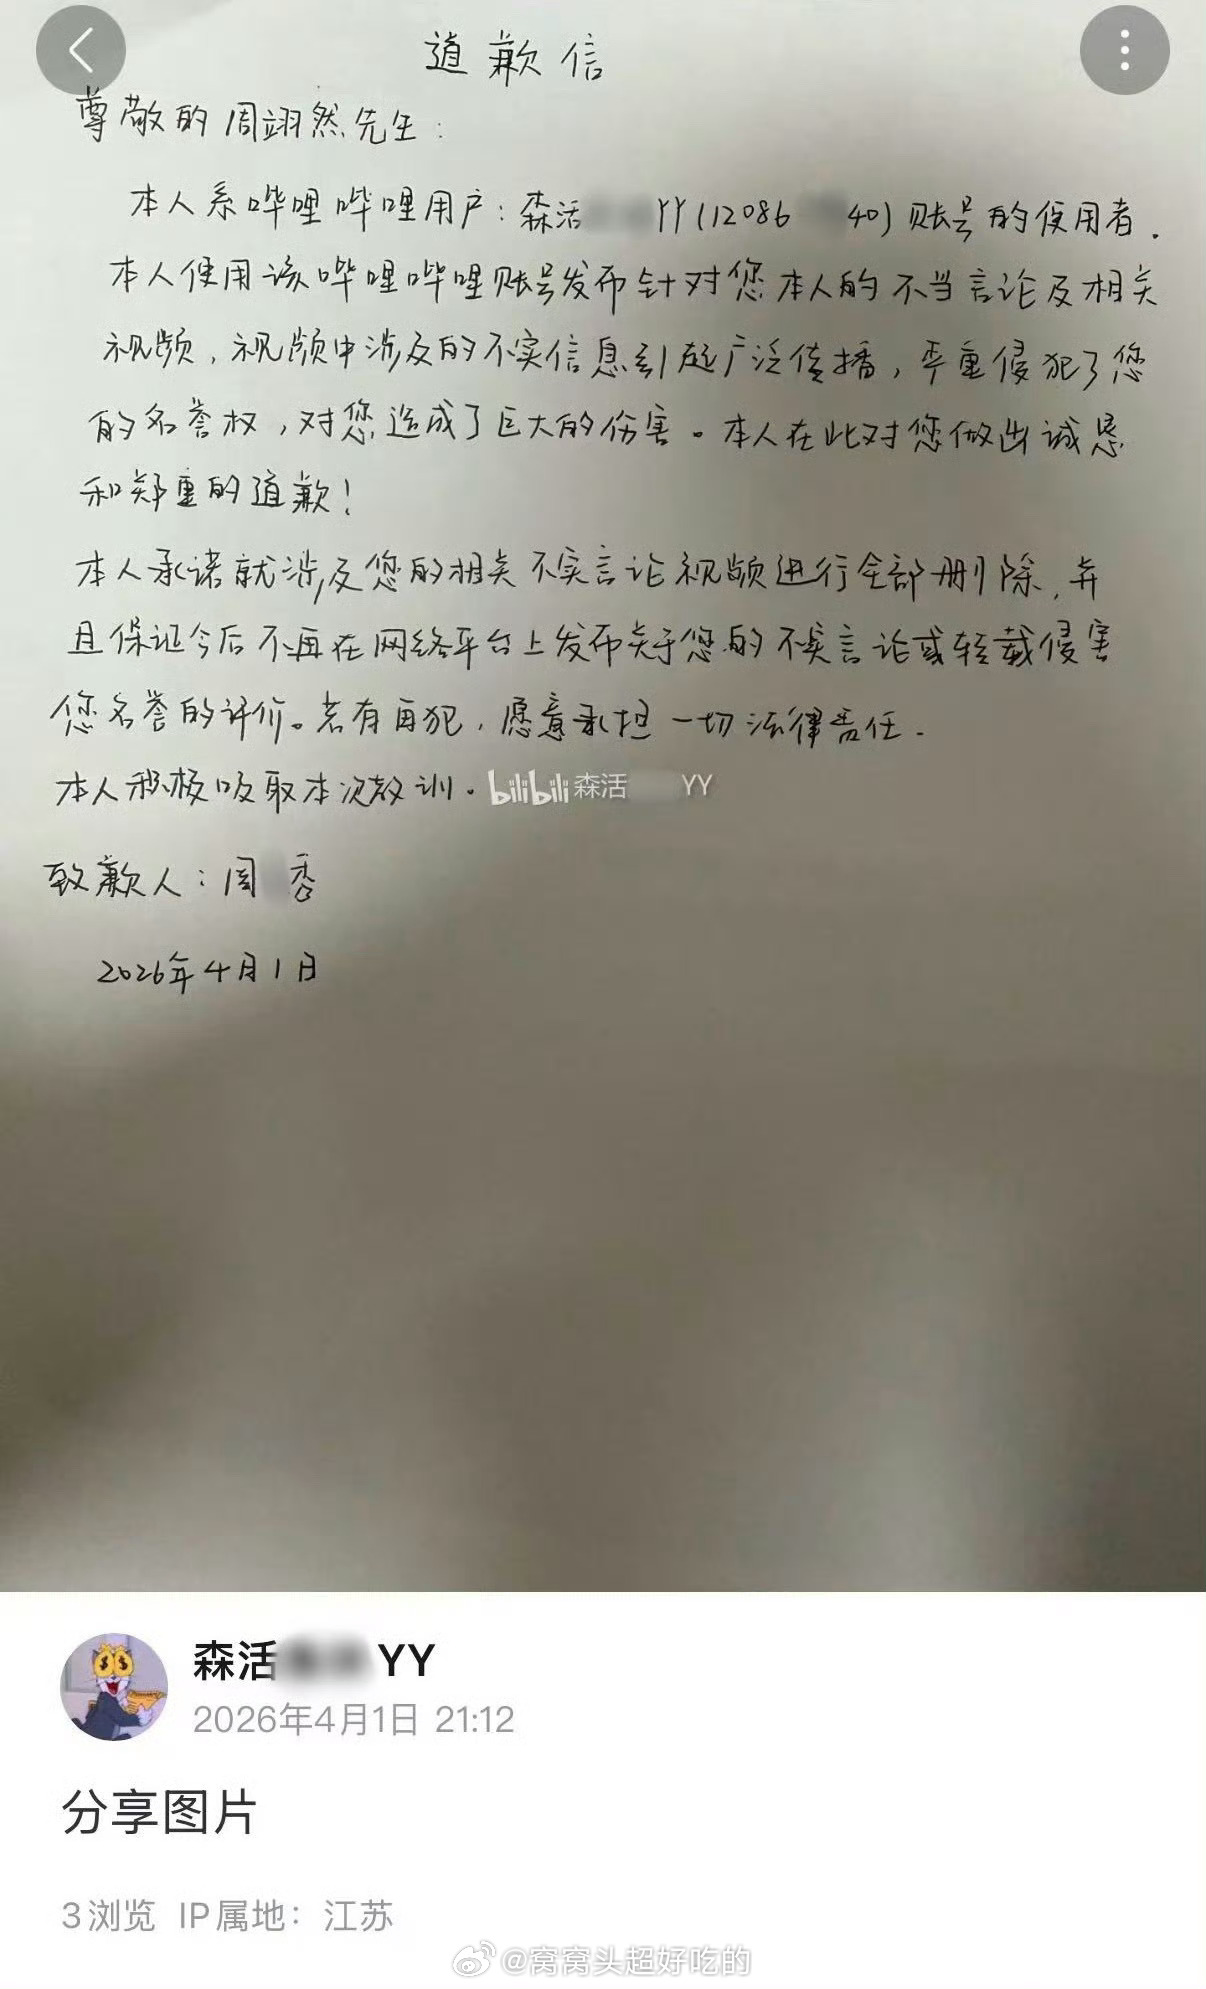 道歉信
尊敬的周翊然先生：
本人系哔哩哔哩用户：森活 YY(12086 40)账号的使用者.
本人使用该哔哩哔哩账号发布针对您本人的不当言论及相关
视频，视频中涉及的不实信息引起广泛传播，严重侵犯了您
的名誉权，对您造成了巨大的伤害。本人在此对您做出诚恳
和郑重的道歉！
本人承诺就涉及您的相关不实言论视频进行全部删除，并
且保证今后不再在网络平台上发布关于您的不实言论或转载侵害
您名誉的评价。若有再犯，愿意承担一切法律责任.
本人积极吸取本次教训。
bilibili 森活 YY
致歉人：周 秀
2026年4月1日
森活 YY
2026年4月1日 21:12
分享图片
3浏览 IP属地：江苏
@窝窝头超好吃的